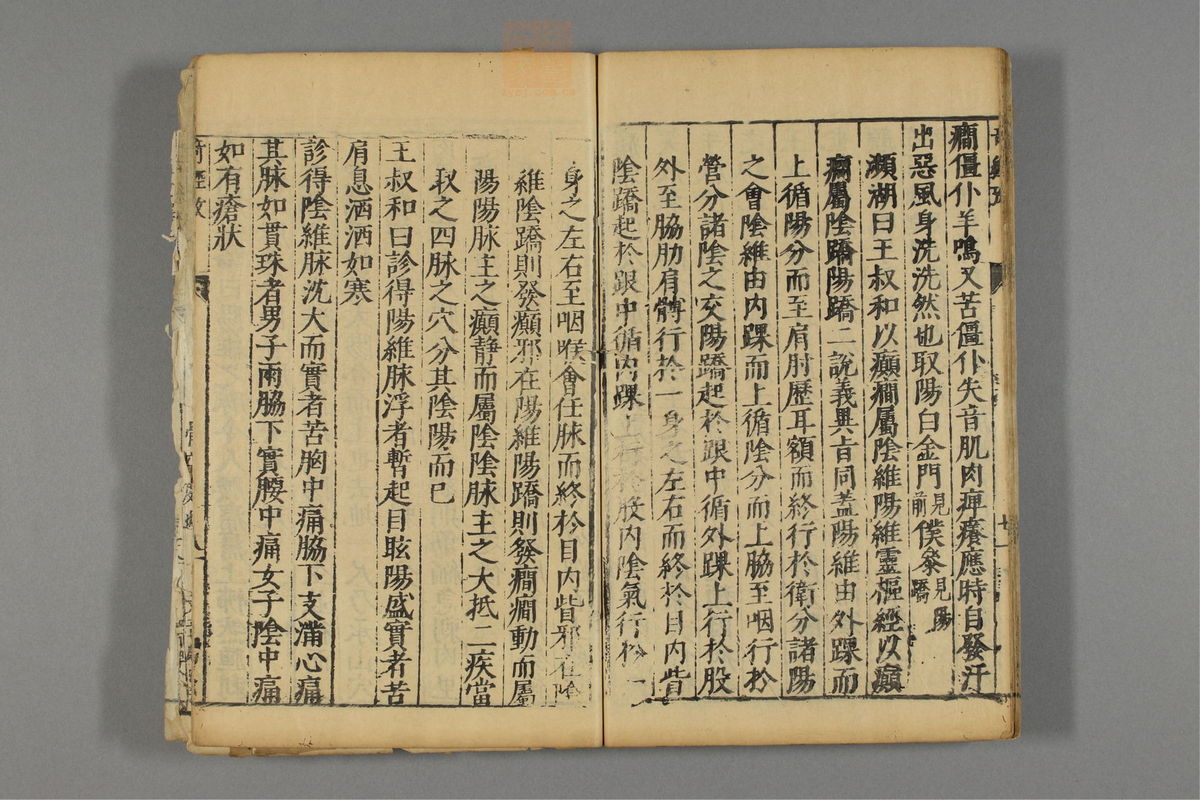 癎僵仆羊鳴又苦僵仆失音肌肉痺癢應時自發汗
出惡風身洗洗然也取陽白金門見前僕參見陽蹻
瀕湖曰王叔和以癲癎屬陰維陽維靈樞經以癲
癎屬陰蹻陽蹻二說義異旨同蓋陽維由外踝而
上循陽分而至肩肘歷耳額而終行於衛分諸陽
之會陰維由内踝而上循陰分而上脇至咽行於
營分諸陰之交陽蹻起於跟中循外踝上行於股
外至脇肋肩髆行於一身之左右而終於目内眥
陰蹻起於跟中循内踝上行於股内陰氣行於一
身之左右至咽喉會任脉而終於目内眥邪在陰
維陰蹻則發癲邪在陽維陽蹻則發癎癎動而屬
陽陽脉主之癲静而屬陰陰脉主之大抵二疾當
取之四脉之穴分其陰陽而已
王叔和曰診得陽維脉浮者暫起目眩陽盛實者苦
肩息洒洒如寒
診得陰維脉沈大而實者苦胸中痛脇下支滿心痛
其脉如貫珠者男子兩脇下實腰中痛女子陰中痛
如有瘡狀